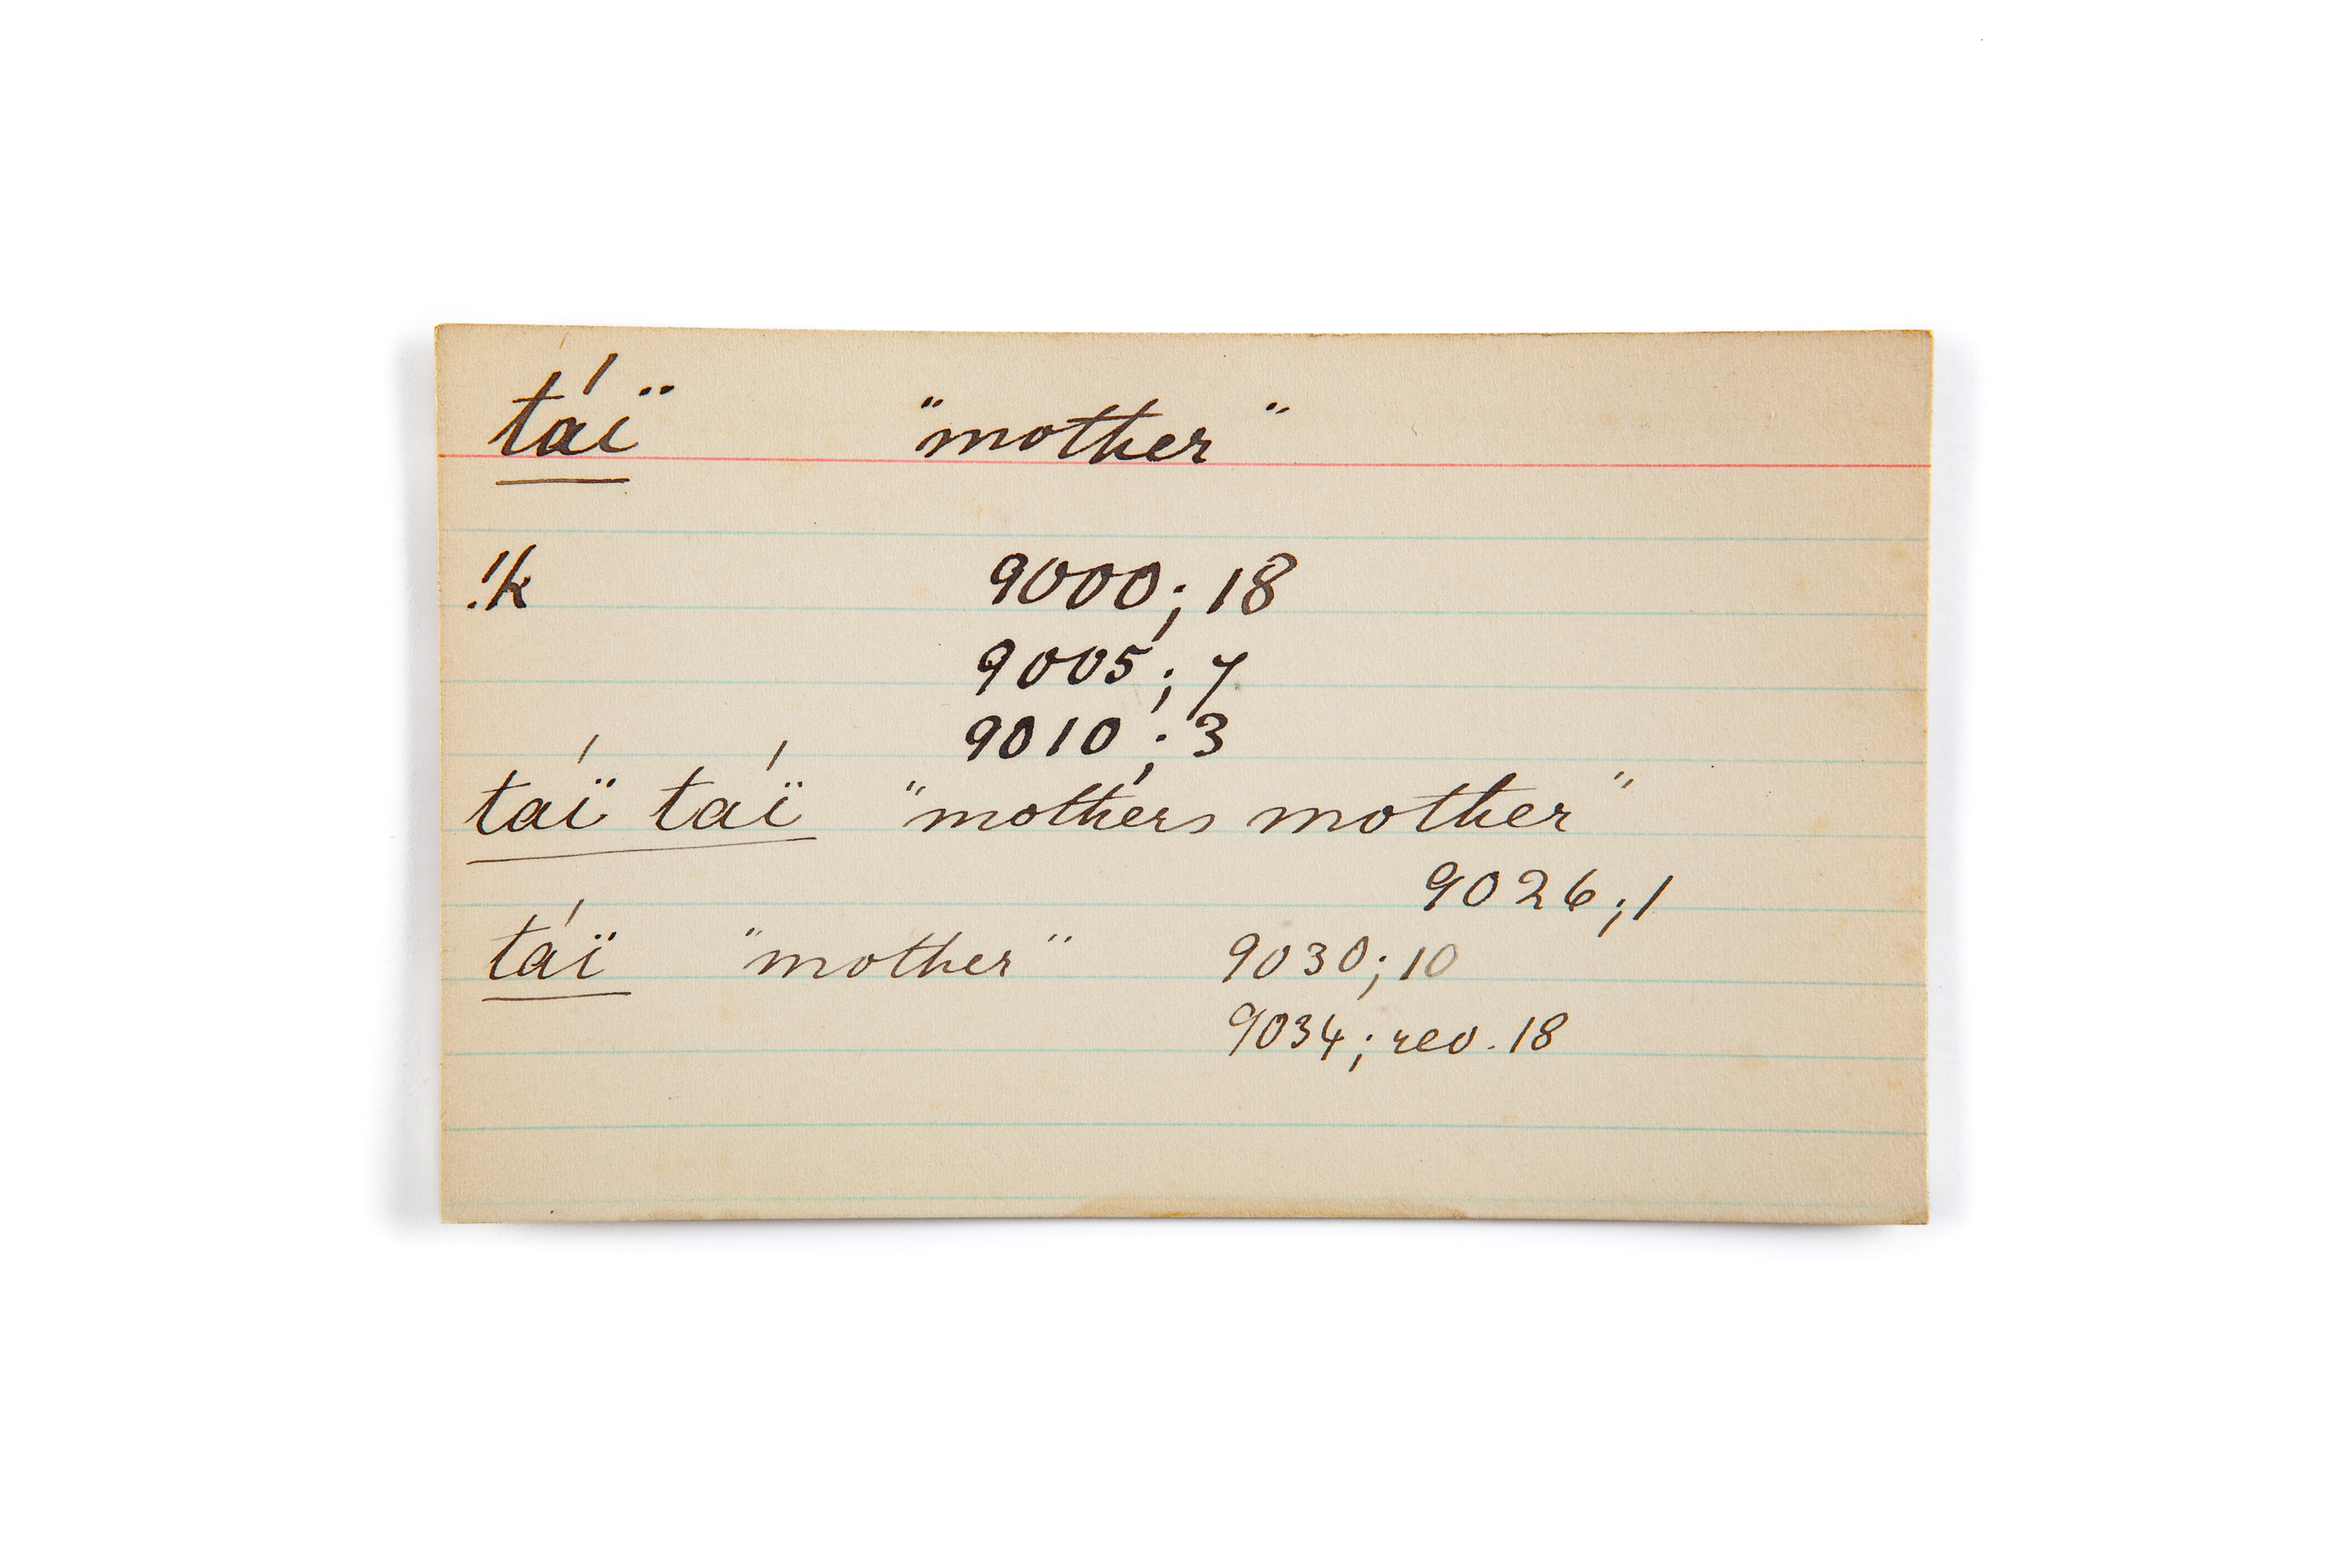 táï "mother"
!k 9000; 18
9005; 7
9010; 3
táï táï "mothers mother"
9026; 1
táï "mother" 9030; 10
9034; rev. 18